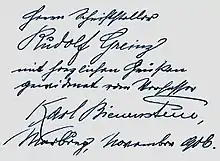 Herrn Schriftsteller
Rudolf Greinz
mit herzlichen Grüßen
gewidmet vom Verfasser
Karl Bienenstein,
Marburg, November 906.